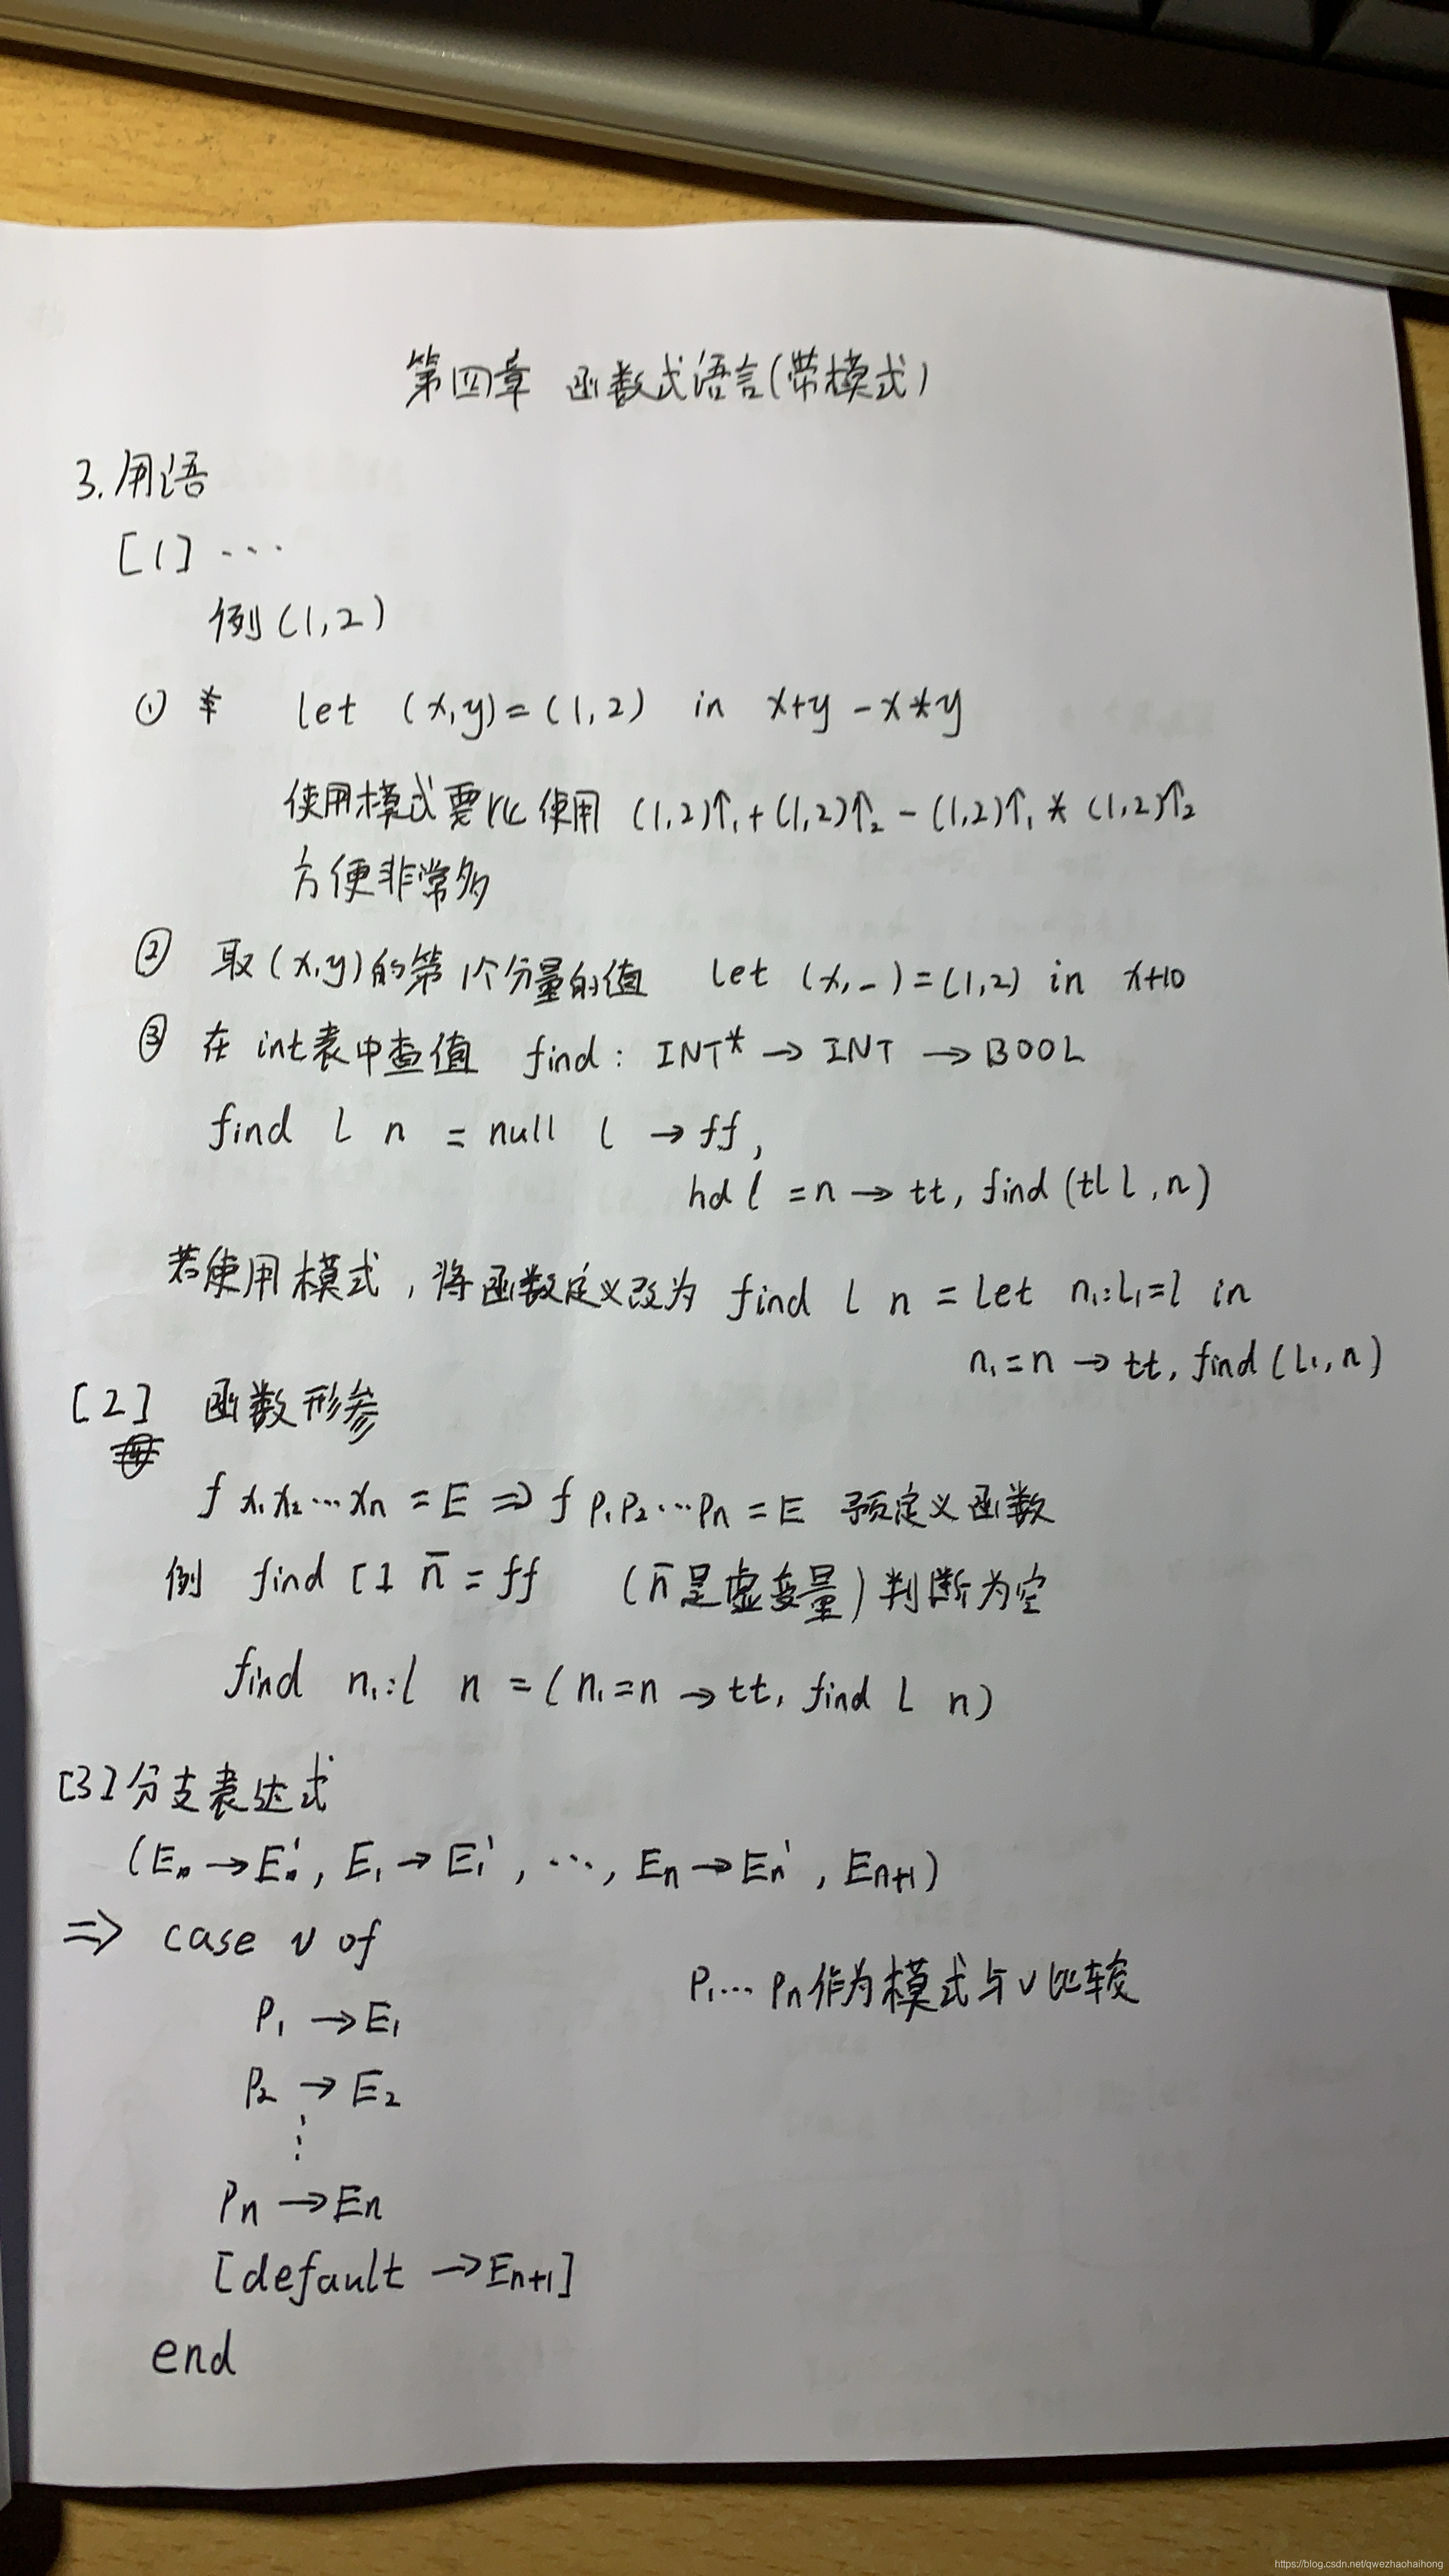 第四章 函数式语言(带模式)
3.用语
[1] ...
例(1,2)
① * let (x,y)=(1,2) in x+y-x*y
使用模式要比使用 (1,2)↑₁+(1,2)↑₂-(1,2)↑₁*(1,2)↑₂
方便非常多
② 取(x,y)的第1个分量的值 let (x,-)=(1,2) in x+10
③ 在int表中查值 find: INT* → INT → BOOL
find l n = null l → ff,
hd l =n → tt, find(tl l,n)
若使用模式,将函数定义改为 find l n = let n₁:l₁=l in
n₁=n → tt, find(l₁,n)
[2] 函数形参
f x₁x₂...xn = E ⇒ f p₁p₂...pn = E 预定义函数
例 find [] n̄ = ff (n̄是虚变量)判断为空
find n₁:l n = (n₁=n → tt, find l n)
[3]分支表达式
(E → E', E₁ → E₁', ..., En → En', En+1)
⇒ case v of
P₁ → E₁
P₁...Pn作为模式与v比较
P₂ → E₂
⋮
Pn → En
[default → En+1]
end
https://blog.csdn.net/qwezhaohaihong